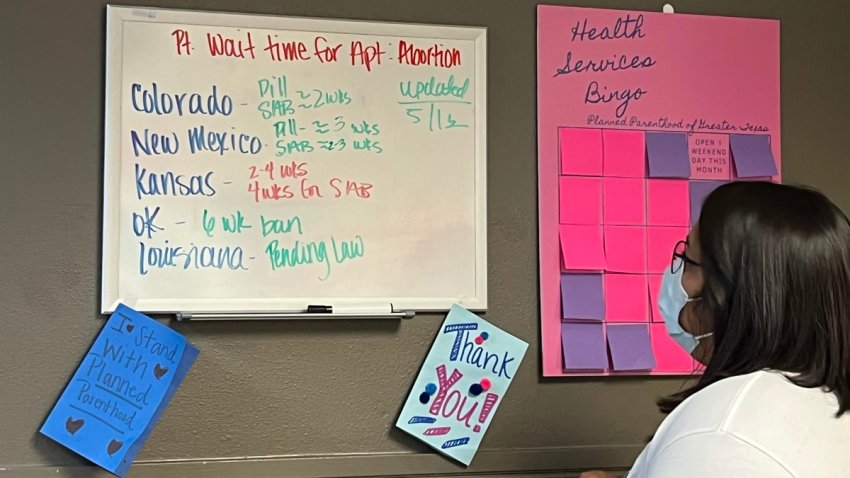 Pt. Wait time for Apt: Abortion
updated
5/13
Colorado - Pill
SAB ≈ 2 wks
New Mexico - Pill - ≈ 3 wks
SAB ≈ 2-3 wks
Kansas - 2-4 wks
4 wks for SAB
OK - 6 wk ban
Louisiana - Pending Law
I ♥ Stand
With
Planned
Parenthood
Thank
You!
Health
Services
Bingo
Planned Parenthood of Greater Texas
OPEN 1
WEEKEND
DAY THIS
MONTH